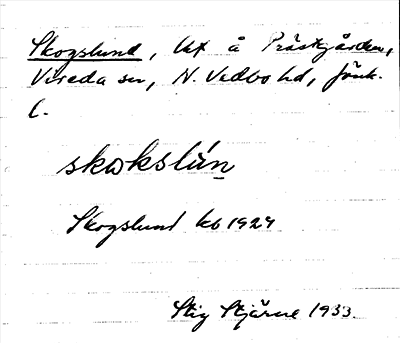 Skogslund, lht å Prästgården,
Vireda sn, N. Vedbo hd, Jönk.
l.
skωkslún̠
Skogslund kb 1924
Stig Stjärne 1933.